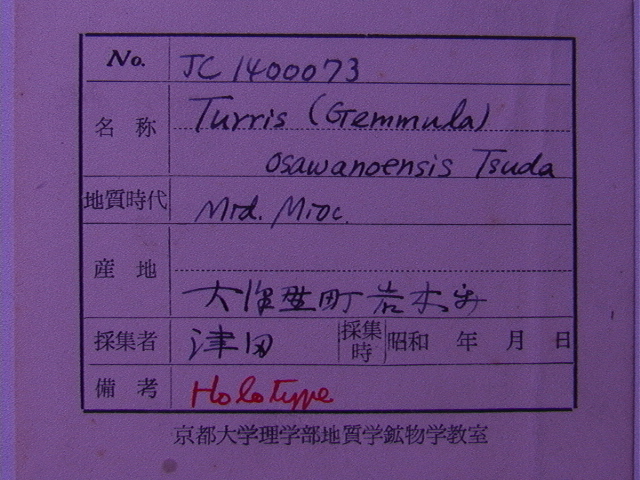 No. JC 1400073
名称 Turris (Gemmula)
osawanoensis Tsuda
地質時代 Mid. Mioc.
産地
大沢野町岩木
採集者 津田 採集時 昭和 年 月 日
備考 Holotype
京都大学理学部地質学鉱物学教室